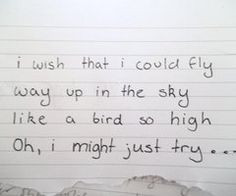 i wish that i could fly
way up in the sky
like a bird so high
Oh, i might just try...